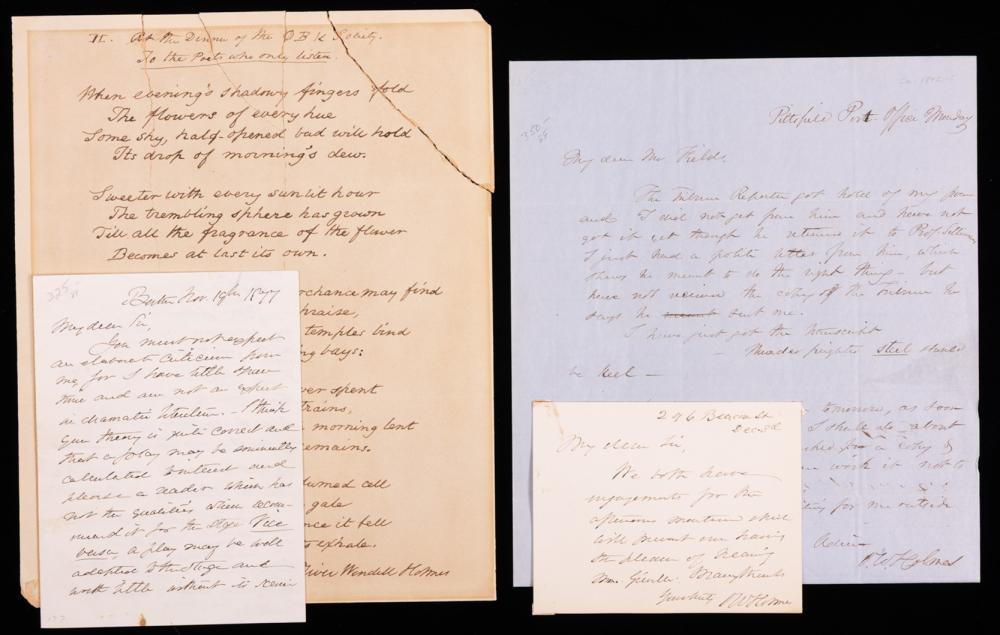 II. At the Dinner of the Φ B K Society.
To the Poets who only listen.
When evening's shadowy fingers fold
The flowers of every hue
Some shy, half-opened bud will hold
Its drop of morning's dew.
Sweeter with every sunlit hour
The trembling sphere has grown
Till all the fragrance of the flower
Becomes at last its own.
rchance may find
hraise,
temples bind
ng bays:
ver spent
trains,
morning lent
emains.
umed cell
gale
nce it fell
exhale.
liver Wendell Holmes
325
Boston Nov. 19th 1877
My dear Sir,
You must not expect
an elaborate criticism from
me for I have little spare
time and am not an expert
in dramatic literature. I think
your theory is quite correct and
that a play may be eminently
calculated to interest and
please a reader which has
not the qualities which recom-
mend it for the stage. Vice
versa, a play may be well
adapted to the stage and
worth little without its scenic
350
Pittsfield Post Office Monday
My dear Mr Fields,
The Tribune Reporter got hold of my poem
and I did not get from him and have not
got it yet though he returns it to Prof
I just had a polite letter from him, which
shows he meant to do the right thing - but
have not received the copy of the Tribune he
says he sent me.
I have just got the manuscript
freighted steel should
be keel -
tomorrow, as soon
I shall do about
for a copy &
work it not to
for me outside
Adieu
O. W. Holmes
296 Beacon St
Dec. 3d
My dear Sir,
We both have
engagements for the
afternoon which
will prevent our having
the pleasure of hearing
Many thanks
Yours truly O W Holmes